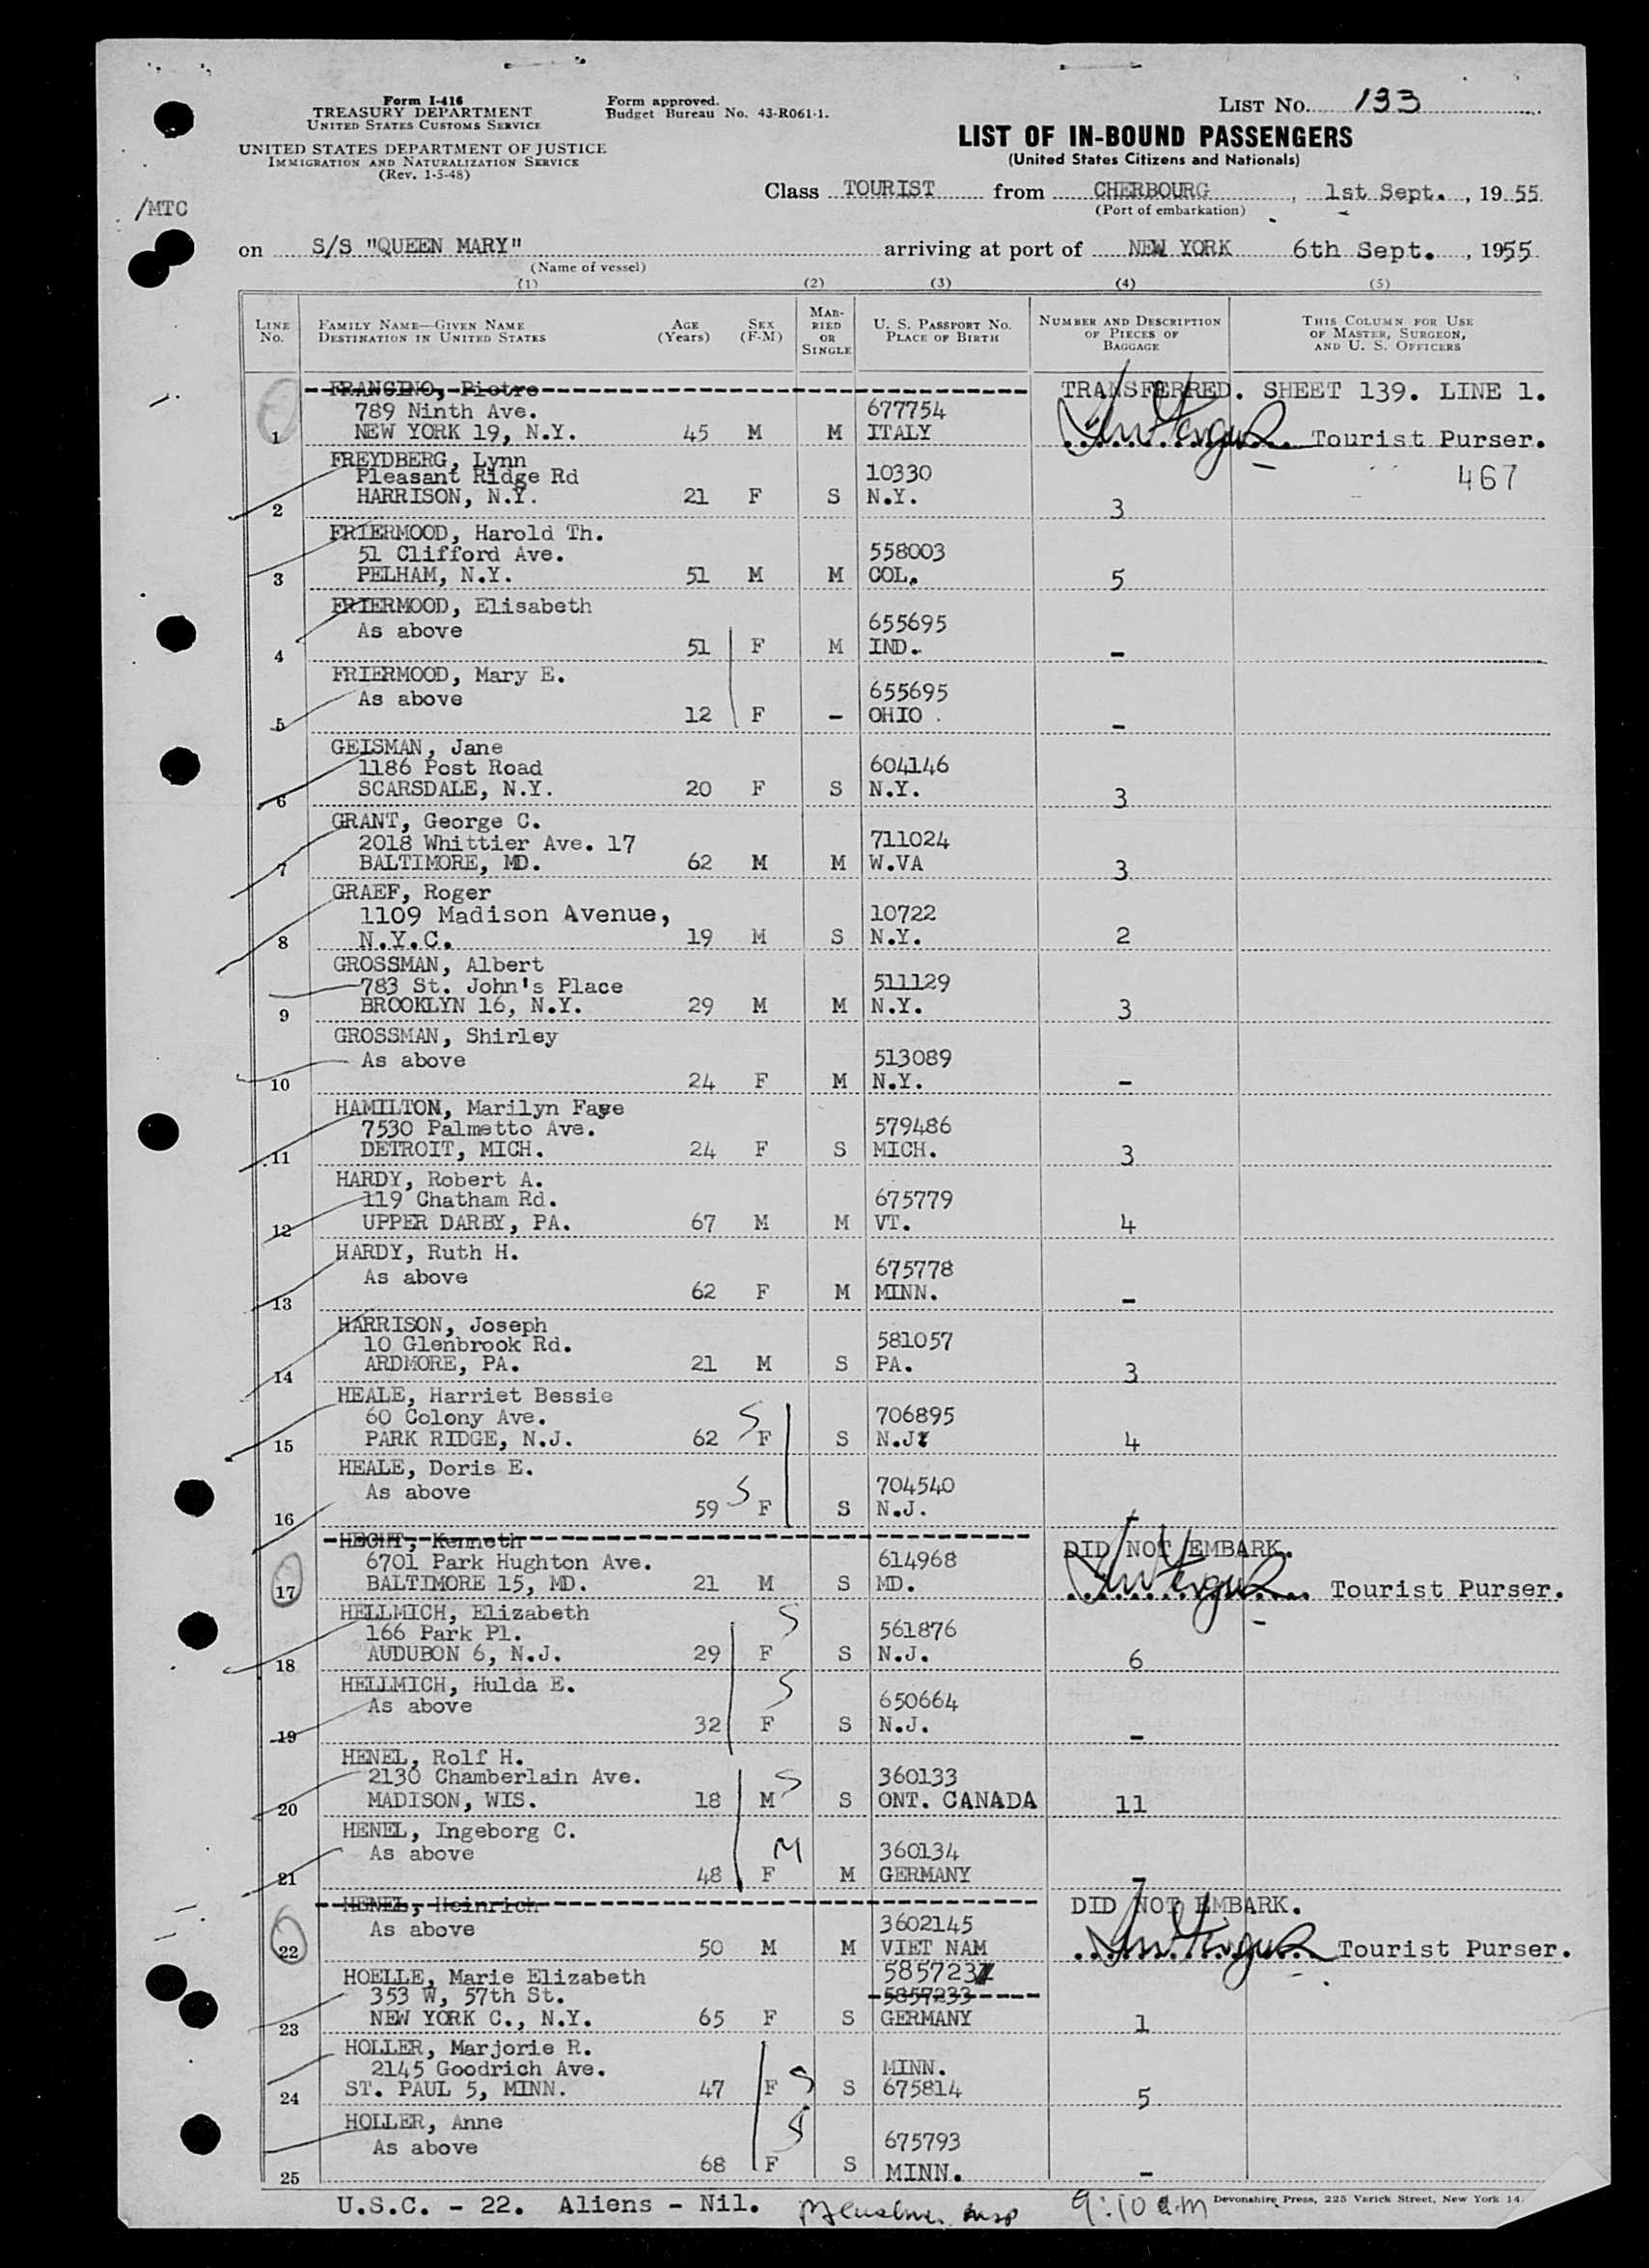 Form I-416
TREASURY DEPARTMENT
UNITED STATES CUSTOMS SERVICE
UNITED STATES DEPARTMENT OF JUSTICE
IMMIGRATION AND NATURALIZATION SERVICE
(Rev. 1-5-48)
Form approved.
Budget Bureau No. 43-R061-1.
LIST No. 133
LIST OF IN-BOUND PASSENGERS
(United States Citizens and Nationals)
/MTC
Class TOURIST from CHERBOURG, 1st Sept., 1955
(Port of embarkation)
on S/S "QUEEN MARY" arriving at port of NEW YORK 6th Sept., 1955
(Name of vessel)
(1) (2) (3) (4) (5)
LINE No. FAMILY NAME—GIVEN NAME DESTINATION IN UNITED STATES AGE (Years) SEX (F-M) MARRIED OR SINGLE U. S. PASSPORT No. PLACE OF BIRTH NUMBER AND DESCRIPTION OF PIECES OF BAGGAGE THIS COLUMN FOR USE OF MASTER, SURGEON, AND U. S. OFFICERS
FRANCINO, Pietro TRANSFERRED. SHEET 139. LINE 1.
789 Ninth Ave. 677754
1 NEW YORK 19, N.Y. 45 M M ITALY Tourist Purser.
FREYDBERG, Lynn
Pleasant Ridge Rd 10330 467
2 HARRISON, N.Y. 21 F S N.Y. 3
FRIERMOOD, Harold Th.
51 Clifford Ave. 558003
3 PELHAM, N.Y. 51 M M COL. 5
FRIERMOOD, Elisabeth
As above 655695
4 51 F M IND. -
FRIERMOOD, Mary E.
As above 655695
5 12 F - OHIO . -
GEISMAN, Jane
1186 Post Road 604146
6 SCARSDALE, N.Y. 20 F S N.Y. 3
GRANT, George C.
2018 Whittier Ave. 17 711024
7 BALTIMORE, MD. 62 M M W.VA 3
GRAEF, Roger
1109 Madison Avenue, 10722
8 N.Y.C. 19 M S N.Y. 2
GROSSMAN, Albert
783 St. John's Place 511129
9 BROOKLYN 16, N.Y. 29 M M N.Y. 3
GROSSMAN, Shirley
As above 513089
10 24 F M N.Y. -
HAMILTON, Marilyn Faye
7530 Palmetto Ave. 579486
11 DETROIT, MICH. 24 F S MICH. 3
HARDY, Robert A.
119 Chatham Rd. 675779
12 UPPER DARBY, PA. 67 M M VT. 4
HARDY, Ruth H.
As above 675778
13 62 F M MINN. -
HARRISON, Joseph
10 Glenbrook Rd. 581057
14 ARDMORE, PA. 21 M S PA. 3
HEALE, Harriet Bessie
60 Colony Ave. S 706895
15 PARK RIDGE, N.J. 62 F S N.J. 4
HEALE, Doris E.
As above S 704540
16 59 F S N.J. -
HECHT, Kenneth DID NOT EMBARK.
6701 Park Hughton Ave. 614968
17 BALTIMORE 15, MD. 21 M S MD. Tourist Purser.
HELLMICH, Elizabeth S
166 Park Pl. 561876
18 AUDUBON 6, N.J. 29 F S N.J. 6
HELLMICH, Hulda E. S
As above 650664
19 32 F S N.J. -
HENEL, Rolf H.
2130 Chamberlain Ave. S 360133
20 MADISON, WIS. 18 M S ONT. CANADA 11
HENEL, Ingeborg C.
As above M 360134
21 48 F M GERMANY -
HENEL, Heinrich DID NOT EMBARK.
As above 3602145
22 50 M M VIET NAM Tourist Purser.
HOELLE, Marie Elizabeth 585723
353 W, 57th St. 5857233
23 NEW YORK C., N.Y. 65 F S GERMANY 1
HOLLER, Marjorie R.
2145 Goodrich Ave. MINN.
24 ST. PAUL 5, MINN. 47 F S S 675814 5
HOLLER, Anne S
As above 675793
25 68 F S MINN. -
U.S.C. - 22. Aliens - Nil. 9:10 am Devonshire Press, 225 Varick Street, New York 14